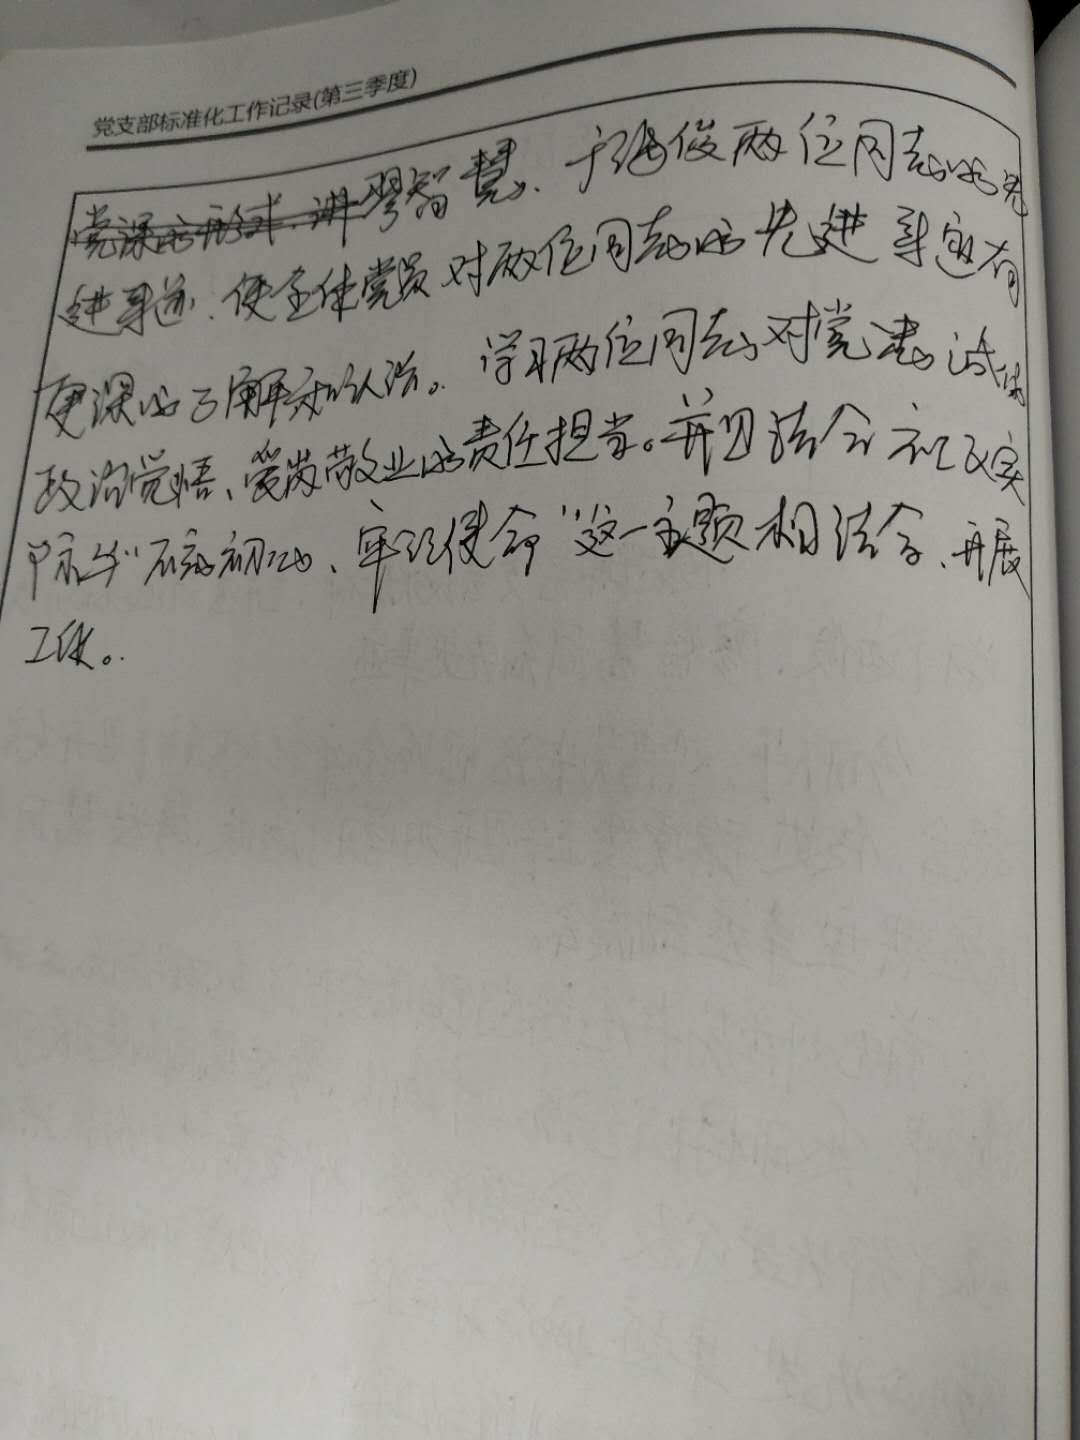 党支部标准化工作记录(第三季度)
党课的形式.讲廖智慧、于海俊两位同志的先
进事迹.使全体党员对两位同志的先进事迹有
更深的了解和认识。学习两位同志对党忠诚的
政治觉悟、爱岗敬业的责任担当。并且结合
"不忘初心、牢记使命"这一主题相结合、开展
工作。